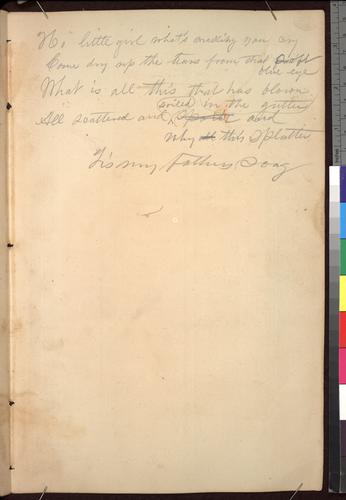 Hi little girl what's making you cry
Come dry up the tears from that soft
blue eye
What is all this that has blown
soiled in the gutter
All scattered and and
why this Splatter
Tis my Fathers Song